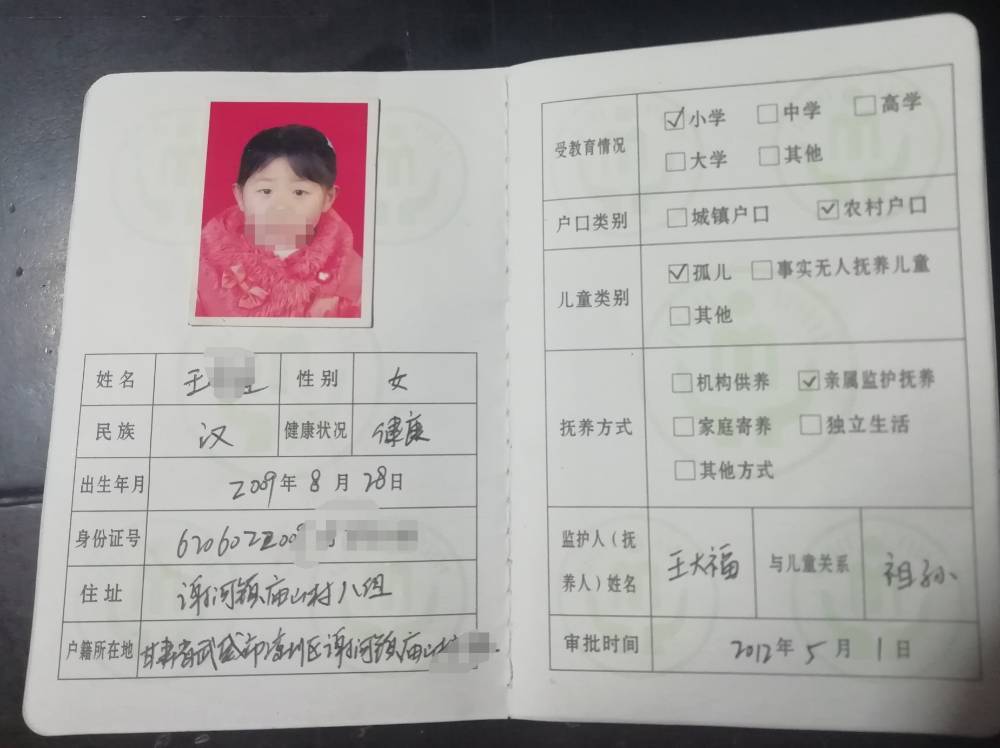 姓名 王 性别 女
民族 汉 健康状况 健康
出生年月 2009年8月28日
身份证号 620602200
住址 谢河镇庙山村八组
户籍所在地 甘肃省武威市凉州区谢河镇庙山村
受教育情况 ☑小学 □中学 □高学
□大学 □其他
户口类别 □城镇户口 ☑农村户口
儿童类别 ☑孤儿 □事实无人抚养儿童
□其他
抚养方式 □机构供养 ☑亲属监护抚养
□家庭寄养 □独立生活
□其他方式
监护人(抚
养人)姓名 王大福 与儿童关系 祖孙
审批时间 2012年5月1日